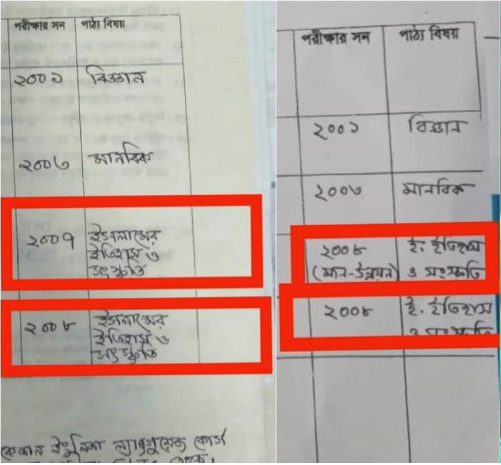 পরীক্ষার সন পাঠ্য বিষয়
২০০১ বিজ্ঞান
২০০৩ মানবিক
২০০৭ ইসলামের
ইতিহাস ও
সংস্কৃতি
২০০৮ ইসলামের
ইতিহাস ও
সংস্কৃতি
ইংলিশ ল্যাঙ্গুয়েজ কোর্স
পরীক্ষার সন পাঠ্য বিষয়
২০০১ বিজ্ঞান
২০০৩ মানবিক
২০০৮ ই. ইতিহাস
(মান-উন্নয়ন) ও সংস্কৃতি
২০০৮ ই. ইতিহাস
ও সংস্কৃতি